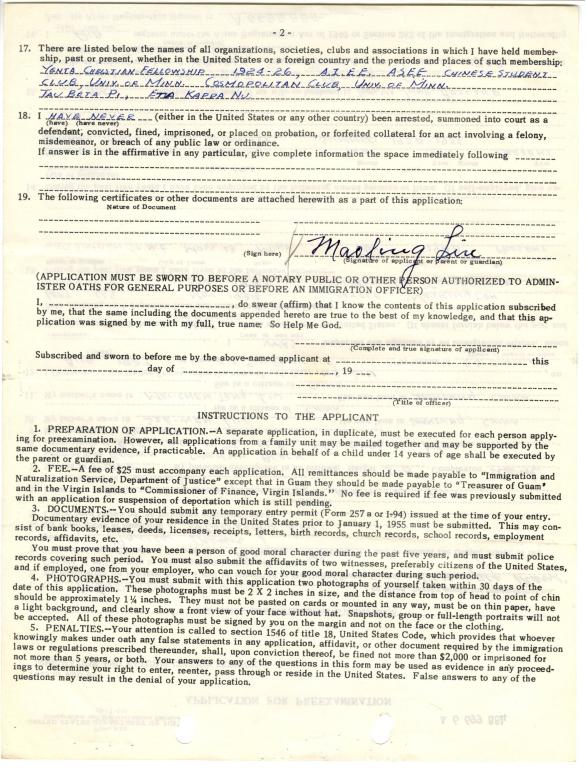 - 2 -
17. There are listed below the names of all organizations, societies, clubs and associations in which I have held member-
ship, past or present, whether in the United States or a foreign country and the periods and places of such membership:
CHRISTIAN FELLOWSHIP 1924-26, A.I.E.E. ASEE CHINESE STUDENT
CLUB, UNIV. OF MINN. COSMOPOLITAN CLUB, UNIV. OF MINN.
TAU BETA PI, ETA KAPPA NU
18. I HAVE NEVER (either in the United States or any other country) been arrested, summoned into court as a
(have) (have never)
defendant, convicted, fined, imprisoned, or placed on probation, or forfeited collateral for an act involving a felony,
misdemeanor, or breach of any public law or ordinance.
If answer is in the affirmative in any particular, give complete information the space immediately following
19. The following certificates or other documents are attached herewith as a part of this application:
Nature of Document
(Sign here) Maoling
(Signature of applicant or parent or guardian)
(APPLICATION MUST BE SWORN TO BEFORE A NOTARY PUBLIC OR OTHER PERSON AUTHORIZED TO ADMIN-
ISTER OATHS FOR GENERAL PURPOSES OR BEFORE AN IMMIGRATION OFFICER)
I, , do swear (affirm) that I know the contents of this application subscribed
by me, that the same including the documents appended hereto are true to the best of my knowledge, and that this ap-
plication was signed by me with my full, true name: So Help Me God.
(Complete and true signature of applicant)
Subscribed and sworn to before me by the above-named applicant at this
day of , 19
(Title of officer)
INSTRUCTIONS TO THE APPLICANT
1. PREPARATION OF APPLICATION.—A separate application, in duplicate, must be executed for each person apply-
ing for preexamination. However, all applications from a family unit may be mailed together and may be supported by the
same documentary evidence, if practicable. An application in behalf of a child under 14 years of age shall be executed by
the parent or guardian.
2. FEE.—A fee of $25 must accompany each application. All remittances should be made payable to "Immigration and
Naturalization Service, Department of Justice" except that in Guam they should be made payable to "Treasurer of Guam"
and in the Virgin Islands to "Commissioner of Finance, Virgin Islands." No fee is required if fee was previously submitted
with an application for suspension of deportation which is still pending.
3. DOCUMENTS.—You should submit any temporary entry permit (Form 257 a or I-94) issued at the time of your entry.
Documentary evidence of your residence in the United States prior to January 1, 1955 must be submitted. This may con-
sist of bank books, leases, deeds, licenses, receipts, letters, birth records, church records, school records, employment
records, affidavits, etc.
You must prove that you have been a person of good moral character during the past five years, and must submit police
records covering such period. You must also submit the affidavits of two witnesses, preferably citizens of the United States,
and if employed, one from your employer, who can vouch for your good moral character during such period.
4. PHOTOGRAPHS.—You must submit with this application two photographs of yourself taken within 30 days of the
date of this application. These photographs must be 2 X 2 inches in size, and the distance from top of head to point of chin
should be approximately 1¼ inches. They must not be pasted on cards or mounted in any way, must be on thin paper, have
a light background, and clearly show a front view of your face without hat. Snapshots, group or full-length portraits will not
be accepted. All of these photographs must be signed by you on the margin and not on the face or the clothing.
5. PENALTIES.—Your attention is called to section 1546 of title 18, United States Code, which provides that whoever
knowingly makes under oath any false statements in any application, affidavit, or other document required by the immigration
laws or regulations prescribed thereunder, shall, upon conviction thereof, be fined not more than $2,000 or imprisoned for
not more than 5 years, or both. Your answers to any of the questions in this form may be used as evidence in any proceed-
ings to determine your right to enter, reenter, pass through or reside in the United States. False answers to any of the
questions may result in the denial of your application.
APPLICATION FOR PREEXAMINATION